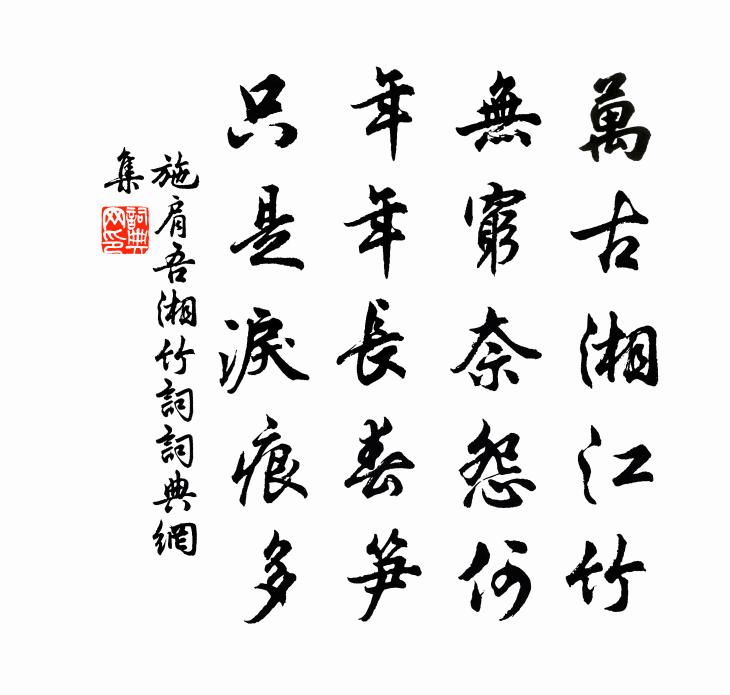 萬古湘江竹
無窮奈怨何
年年長春笋
只是淚痕多
施肩吾湘竹詞詞典網
集
詞典
网印